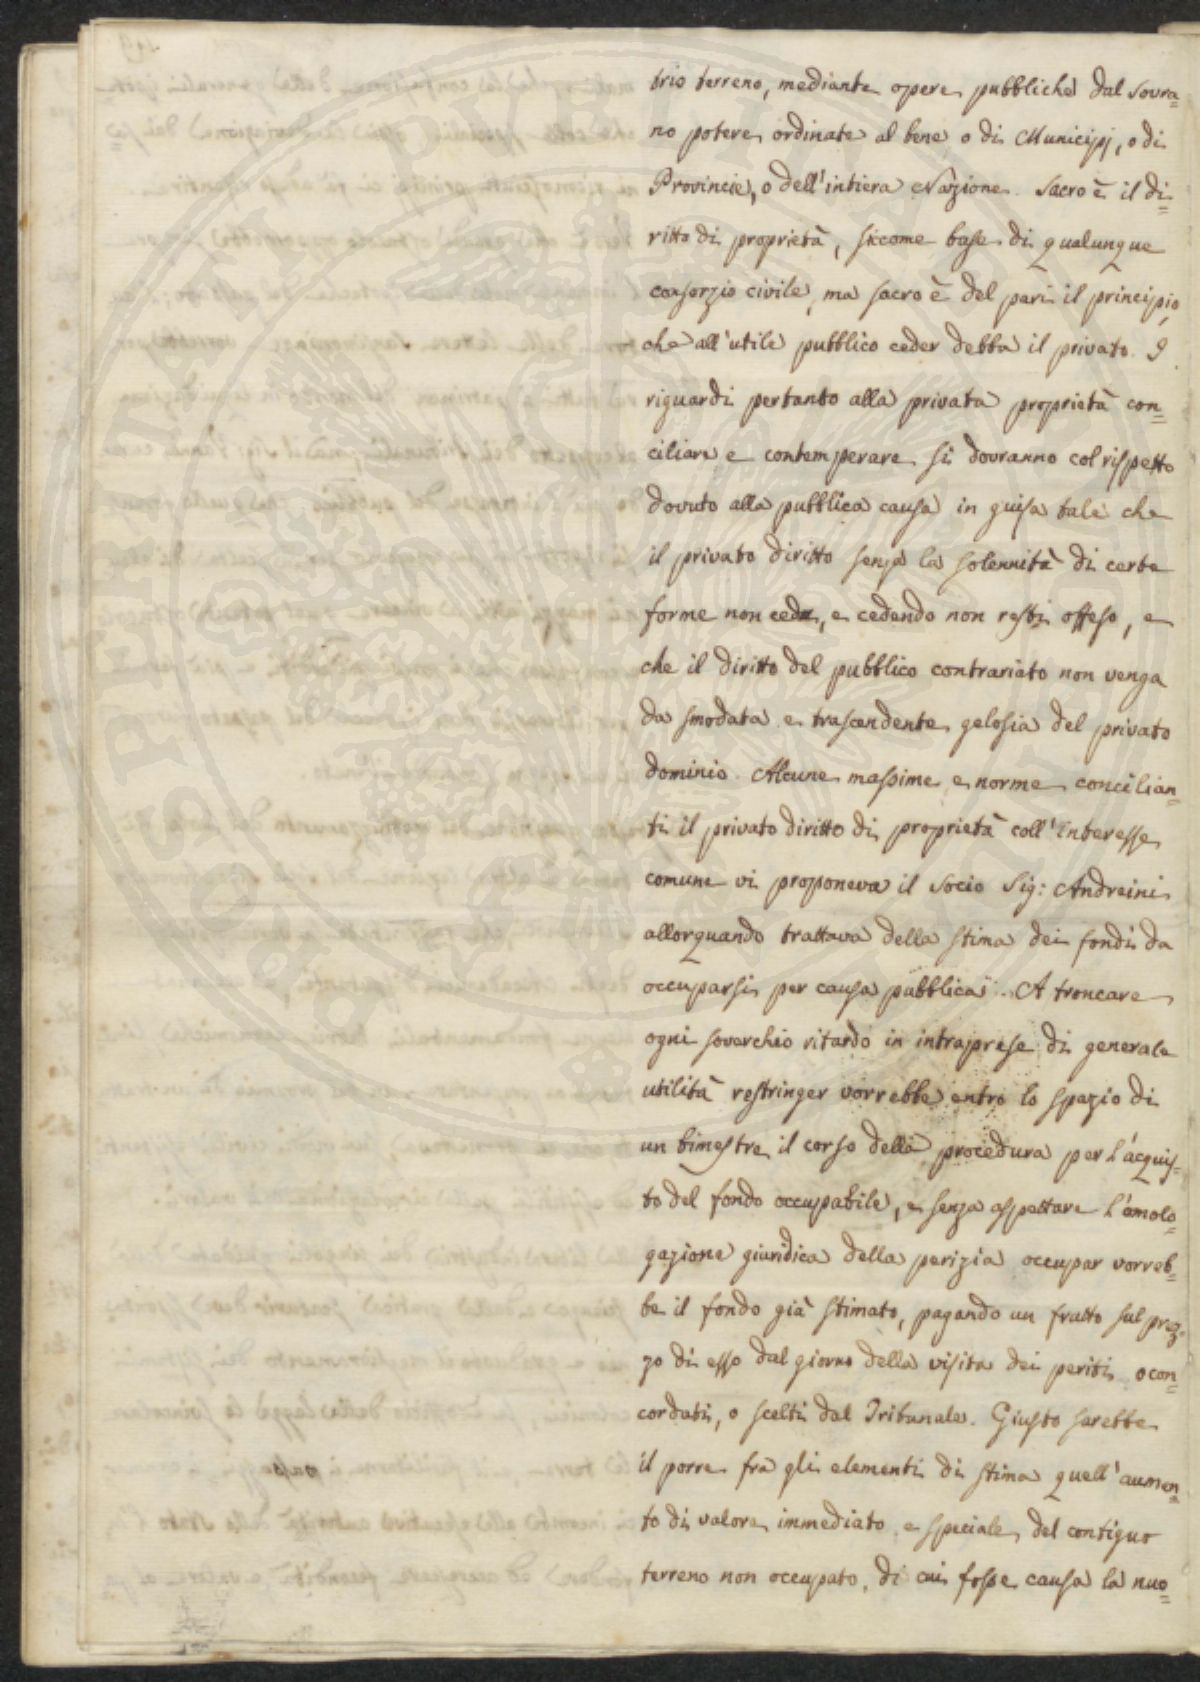 trio terreno, mediante opere pubbliche dal sovra=
no potere ordinate al bene o di Municipj, o di
Provincie, o dell'intiera Nazione. Sacro è il di=
ritto di proprietà, siccome base di qualunque
consorzio civile, ma sacro è del pari il principio,
che all'utile pubblico ceder debba il privato. I
riguardi pertanto alla privata proprietà con=
ciliare e contemperare si dovranno col rispetto
dovuto alla pubblica causa in guisa tale che
il privato diritto senza la solennità di certe
forme non ceda, e cedendo non resti offeso, e
che il diritto del pubblico contrariato non venga
da smodata e trascendente gelosia del privato
dominio. Alcune massime e norme concilian=
ti il privato diritto di proprietà coll'Interesse
comune vi proponeva il socio Sig: Andreini
allorquando trattava della stima dei fondi da
occuparsi per causa pubblica. A troncare
ogni soverchio ritardo in intraprese di generale
utilità restringer vorrebbe entro lo spazio di
un bimestre il corso della procedura per l'acquis=
to del fondo occupabile, e senza aspettare l'omolo=
gazione giuridica della perizia occupar vorreb=
be il fondo già stimato, pagando un frutto sul prez=
zo di esso dal giorno della visita dei periti o con=
cordati, o scelti dal Tribunale. Giusto sarebbe
il porre fra gli elementi di stima quell'aumen=
to di valore immediato e speciale del contiguo
terreno non occupato, di cui fosse causa la nuo=